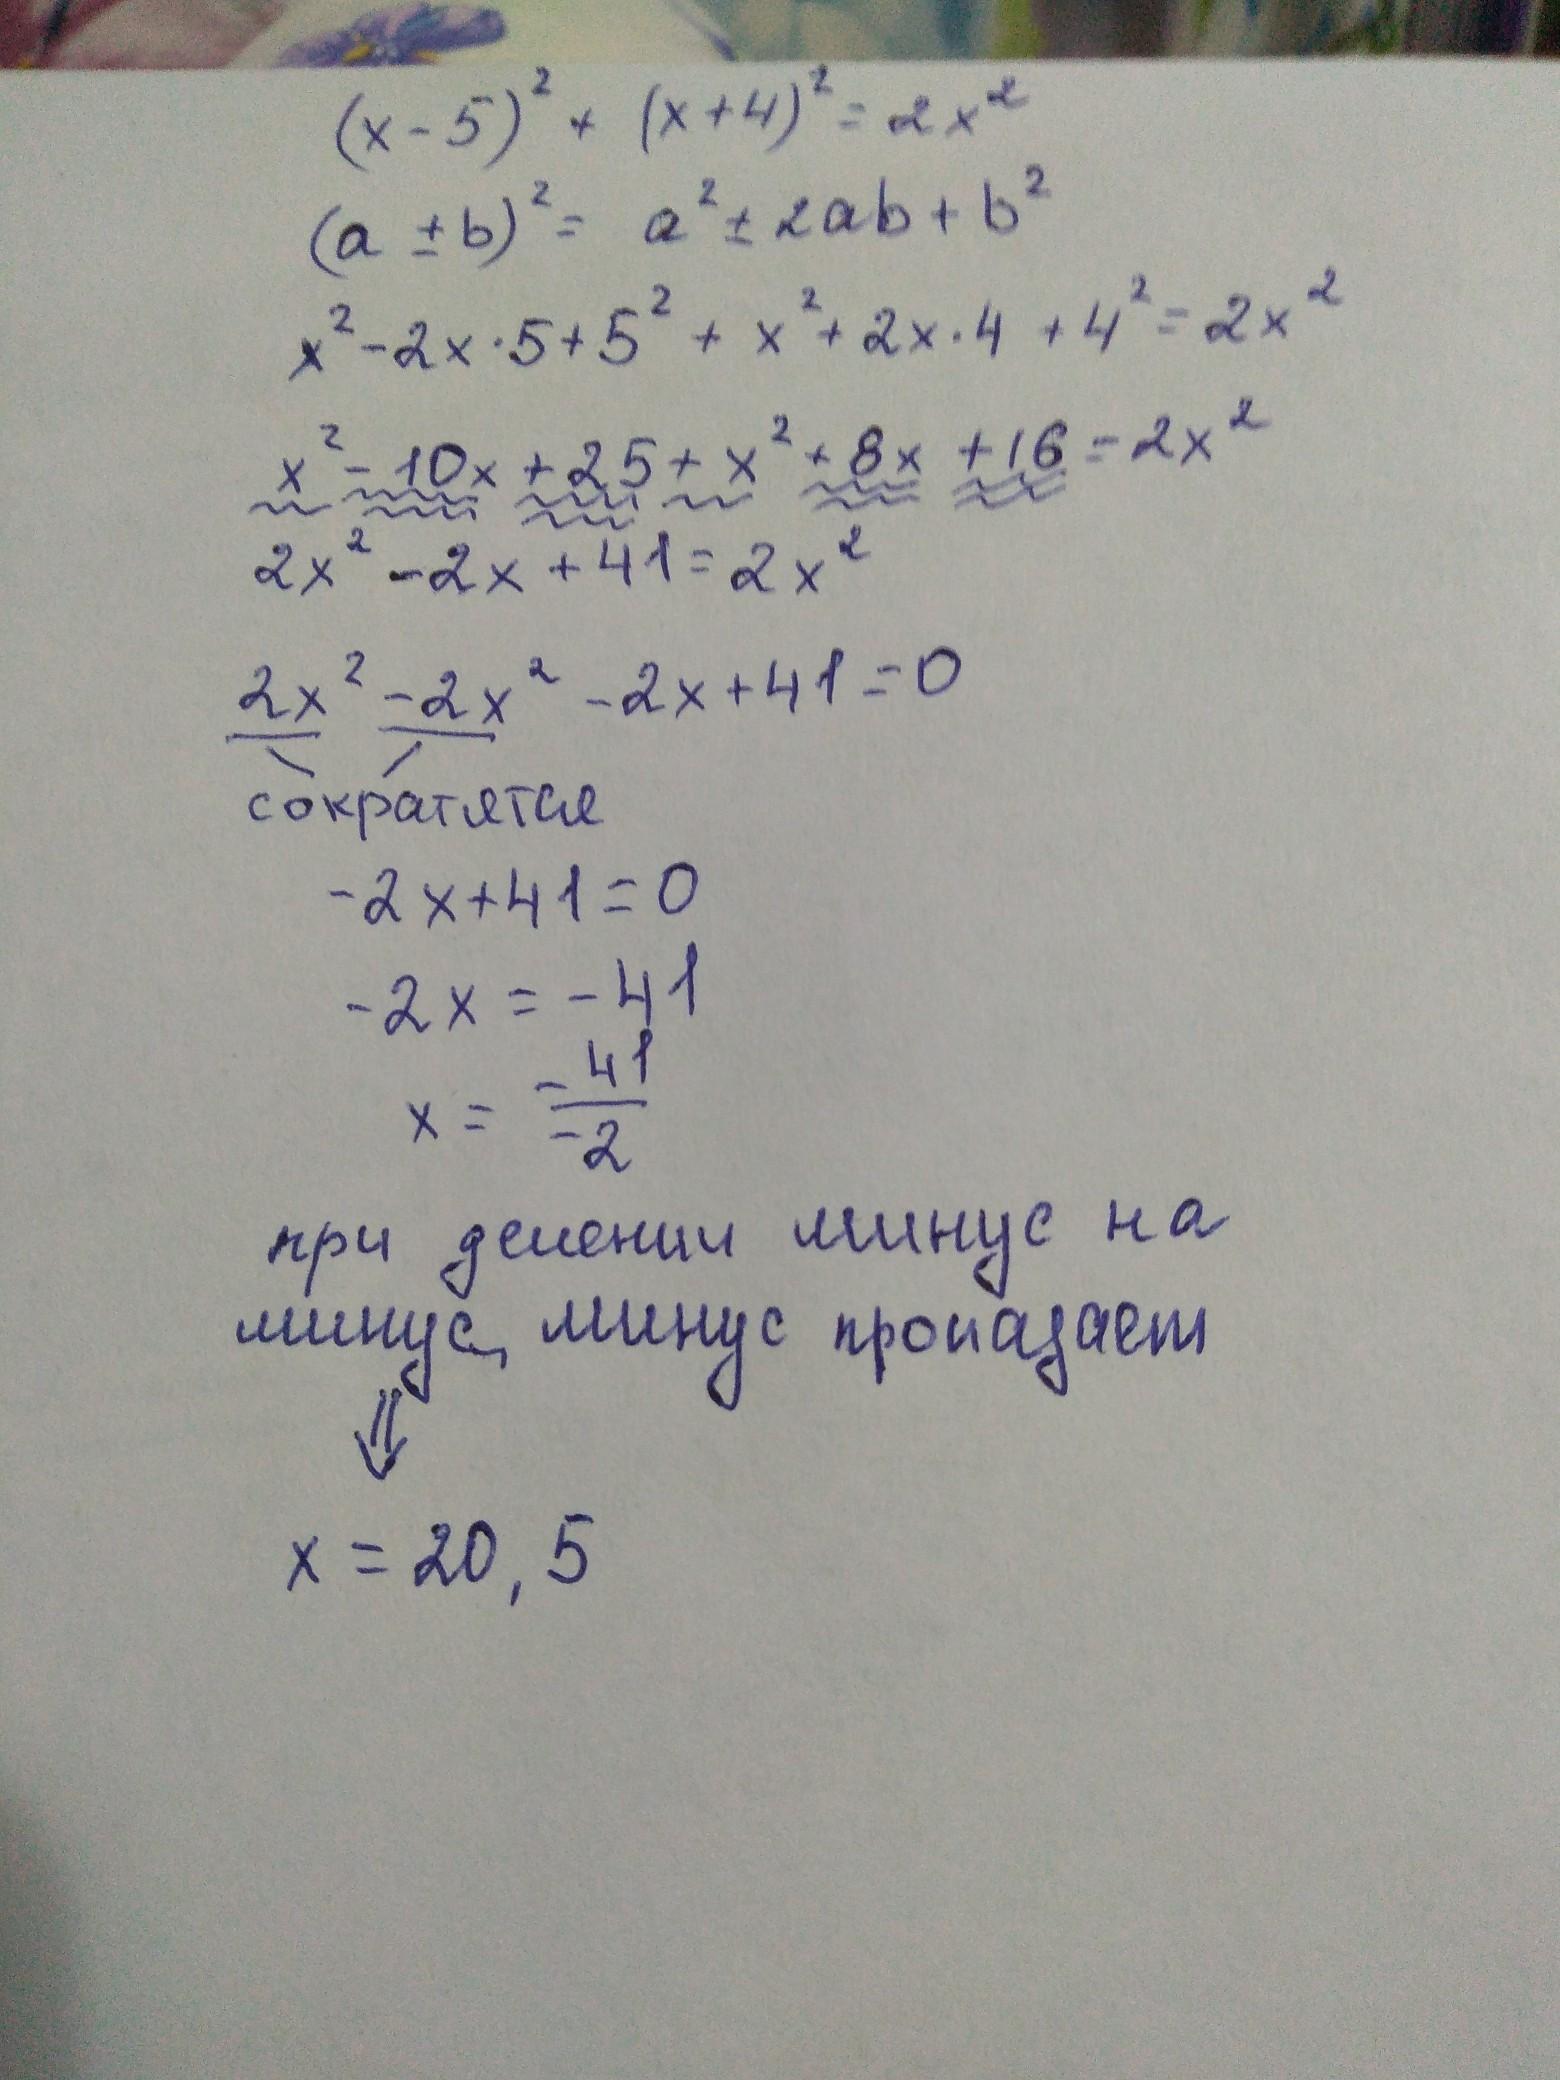 (x-5)² + (x+4)² = 2x²
(a ± b)² = a² ± 2ab + b²
x² - 2x · 5 + 5² + x² + 2x · 4 + 4² = 2x²
x² - 10x + 25 + x² + 8x + 16 = 2x²
2x² - 2x + 41 = 2x²
2x² - 2x² - 2x + 41 = 0
сократятся
-2x + 41 = 0
-2x = -41
x = -41/-2
при делении минус на
минус, минус пропадает
⇓
x = 20,5